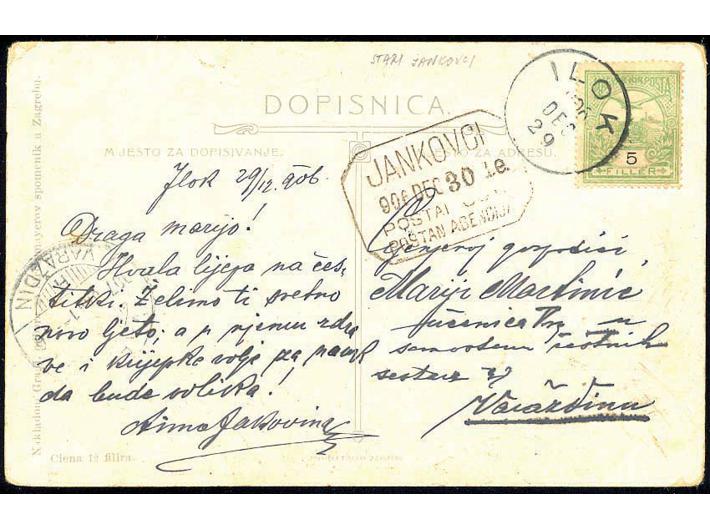 STARI JANKOVCI
DOPISNICA.
MJESTO ZA DOPISIVANJE.
ZA ADRESU.
ILOK
906 DEC 29
POSTA
5
FILLER
JANKOVCI
906 DEC 30
POSTAI
POSTAN AGENCIJA
VARAŽDIN
Ilok 29/12 906.
Draga Marijo!
Hvala lijepa na čes-
titki. Želimo ti sretno
novo ljeto, a u njemu zdra
ve i krijepke volje za nauk
da bude odlika!
Jakovina
gospodjici
Mariji Martinić
učenica
samostan
sestara
Varaždinu
spomenik u Zagrebu.
Ciena 12 filira.